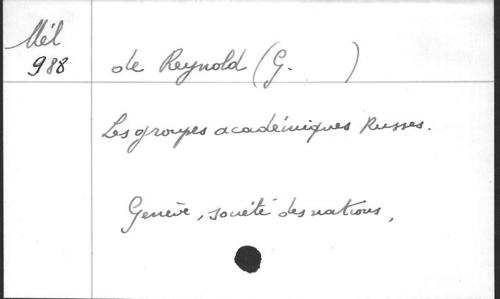 Mél
988
de Reynold (G. )
Les groupes académiques Russes.
Genève, société des nations,